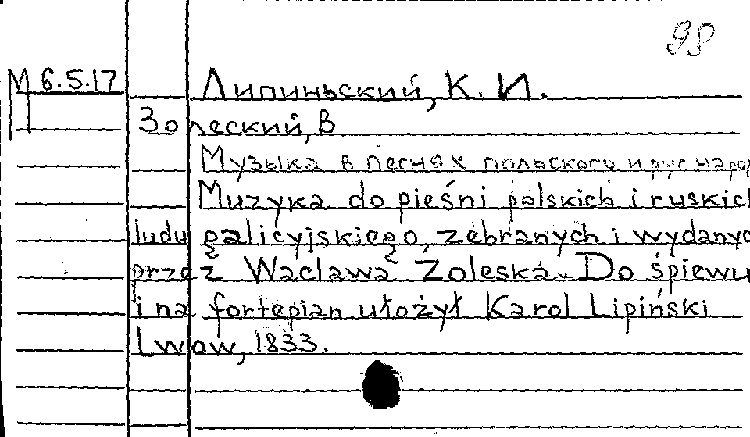 98
М 6.5.17 Липиньский, К. И.
Золеский, В
Музыка в песнях польского и рус народ
Muzyka do pieśni polskich i ruskich
ludu galicyjskiego, zebranych i wydanyc
przez Waclawa Zoleska. Do śpiewu
i na fortepian ułożył Karol Lipiński
Lwow, 1833.